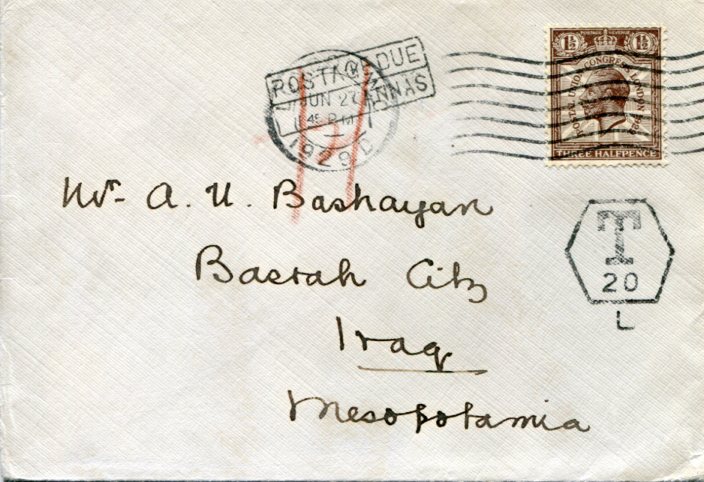 POSTAGE DUE
ANNAS
JUN 27
45 PM
1929 D
1½ POSTAGE REVENUE 1½
POSTAL UNION CONGRESS LONDON 1929
THREE HALFPENCE
T
20
L
Mr. A. U. Bashayan
Basrah City
Iraq
Mesopotamia